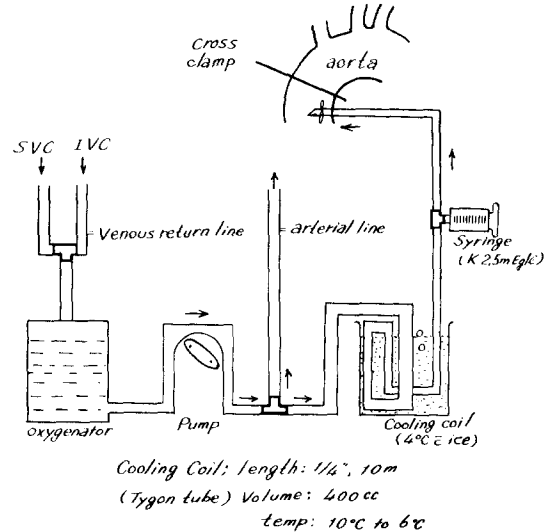 cross
clamp
aorta
SVC
IVC
Venous return line
arterial line
Syringe
(K 2,5mEq/ℓ)
oxygenator
Pump
Cooling coil
(4°C = ice)
Cooling Coil; length: 1/4", 10m
(Tygon tube) Volume: 400cc
temp: 10°C to 6°C